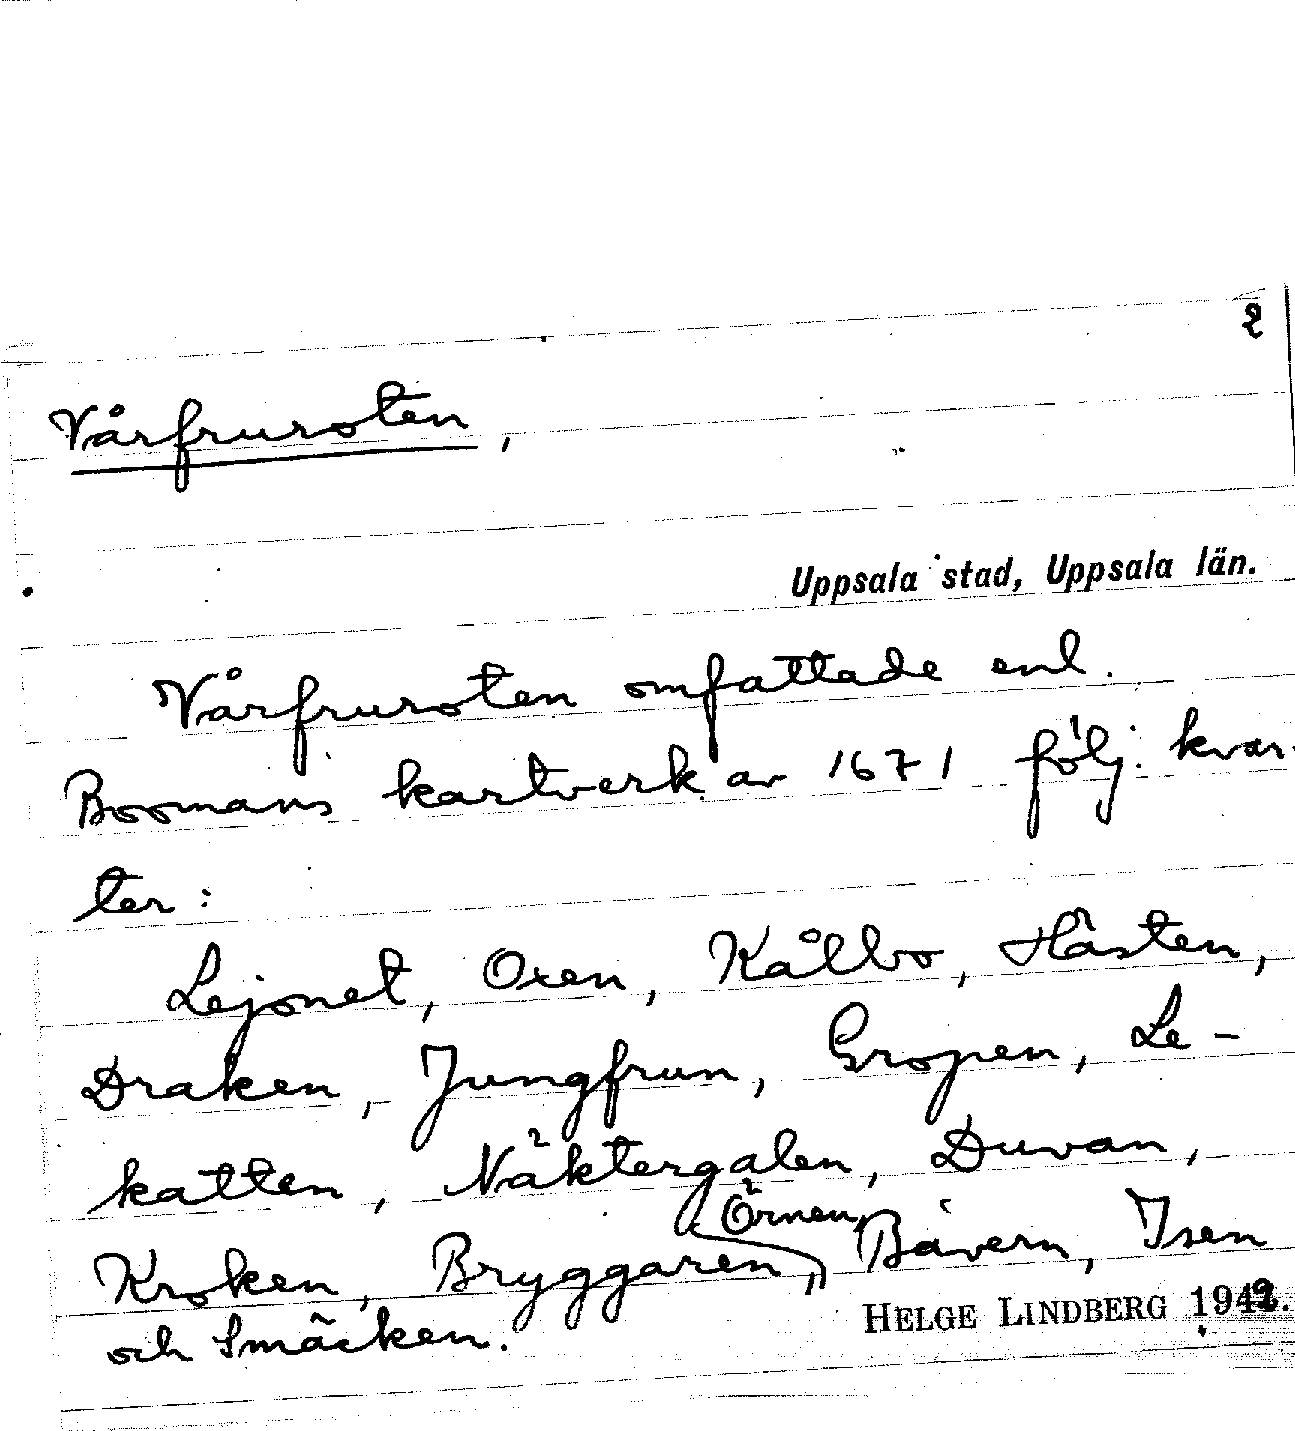 2
Vårfruroten,
Uppsala stad, Uppsala län.
Vårfruroten omfattade enl.
Boomans kartverk av 1671 följ. kvar-
ter:
Lejonet, Oxen, Kålbo, Hästen,
Draken, Jungfrun, Gropen, Le-
katten, Näktergalen, Duvan,
Kroken, Bryggaren, Örnen, Bävern, Isen
och Smäcken.
HELGE LINDBERG 1942.